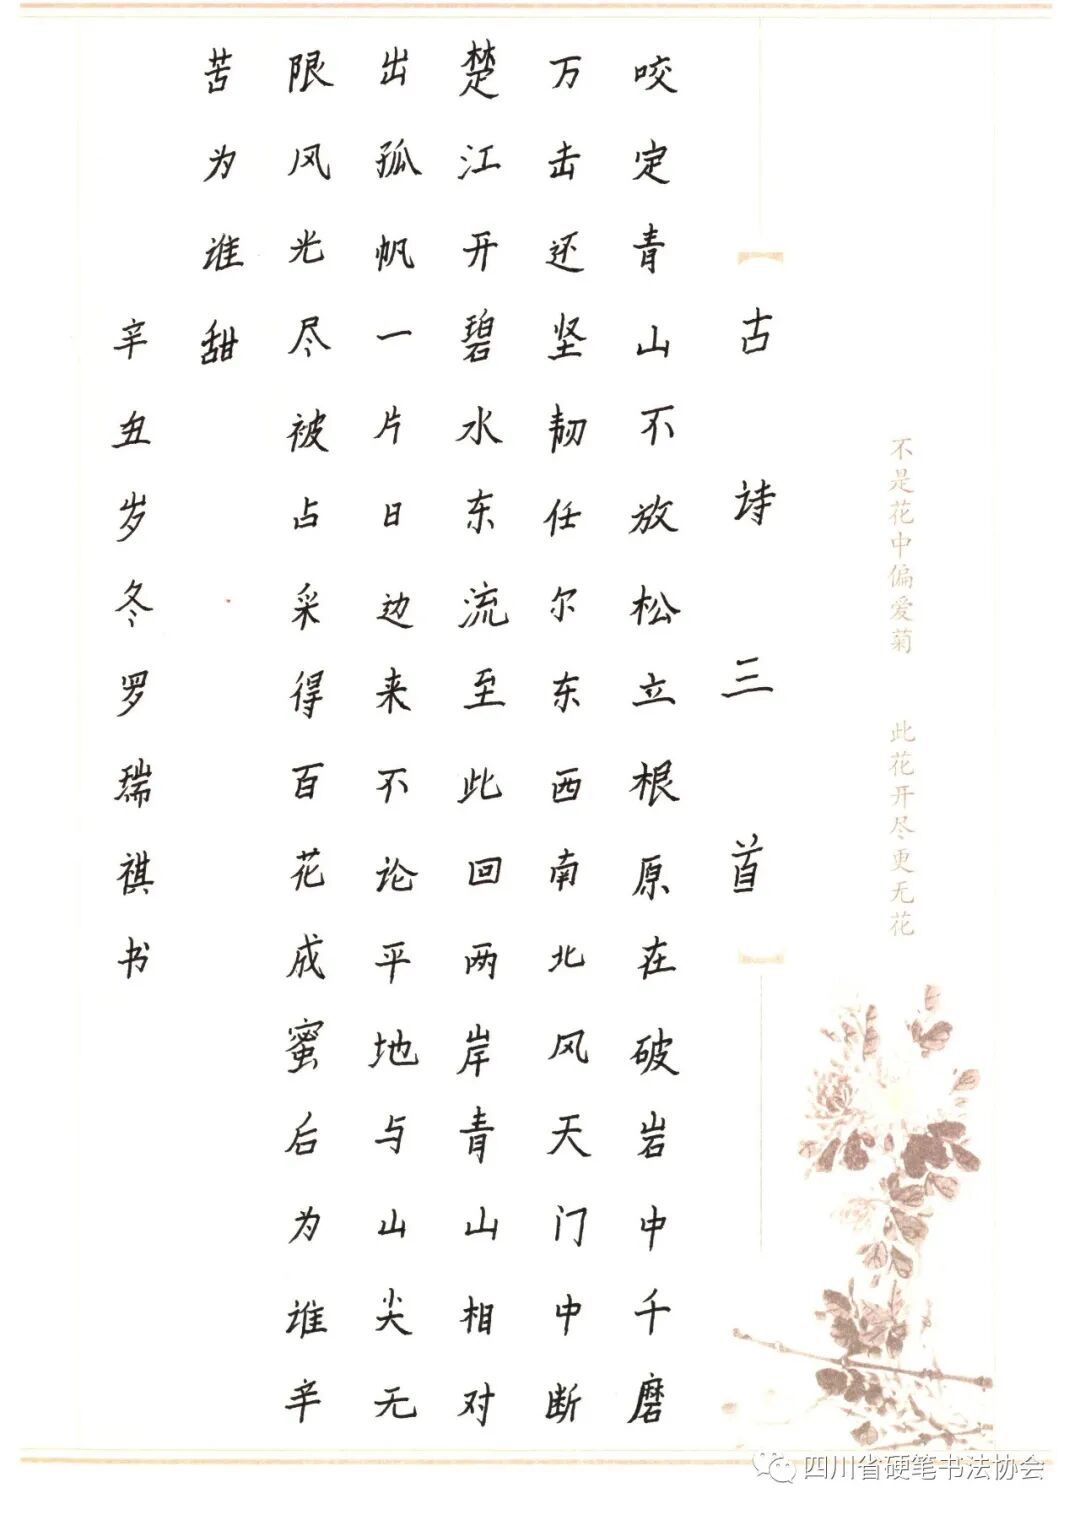 不是花中偏爱菊 此花开尽更无花
古诗三首
咬定青山不放松立根原在破岩中千磨
万击还坚韧任尔东西南北风天门中断
楚江开碧水东流至此回两岸青山相对
出孤帆一片日边来不论平地与山尖无
限风光尽被占采得百花成蜜后为谁辛
苦为谁甜
辛丑岁冬罗瑞祺书
四川省硬笔书法协会